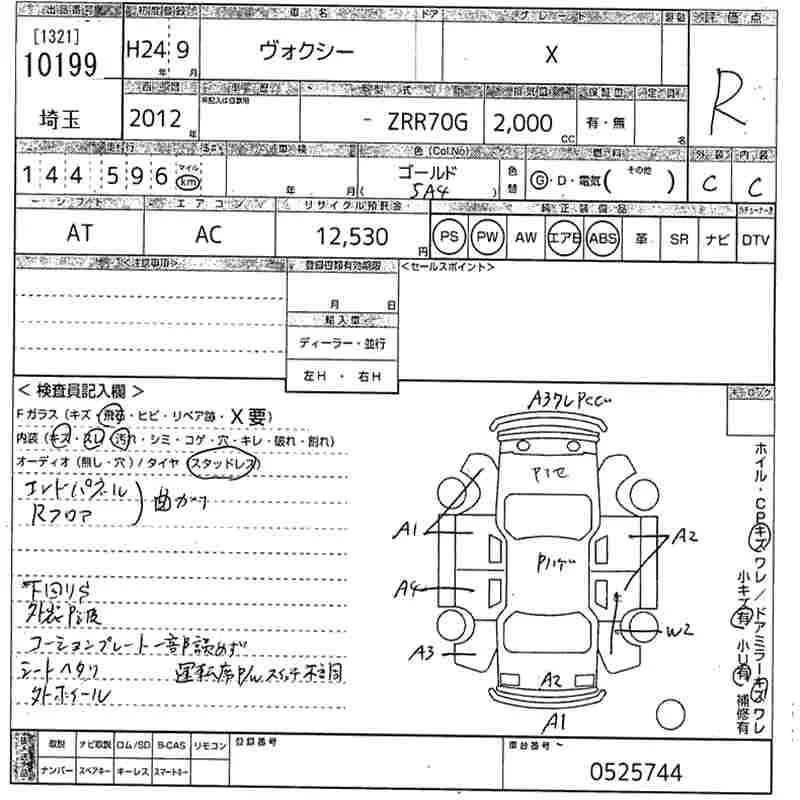 出品番号 初度登録 車名 ドア グレード 評価点
[1321]
10199 H24 9 ヴォクシー X R
年 月
埼玉 西暦 車歴 型式 排気量 定員
2012年 - ZRR70G 2,000 CC 有・無 名
走行 車検 色 (Col.No) 燃料 外装 内装
144596 マイル km 年 月 ( ゴールド 5A4 ) 色替 G・D・電気( その他 ) C C
シフト エアコン リサイクル預託金 純正装備品
AT AC 12,530円 PS PW AW エアB ABS 革 SR ナビ DTV
<注意事項> 登録書類有効期限 <セールスポイント>
月 日
輸入車
ディーラー・並行
左H ・ 右H
< 検査員記入欄 >
Fガラス (キズ・飛石・ヒビ・リペア跡・X要)
内装 (キズ・スレ・汚れ・シミ・コゲ・穴・キレ・破れ・割れ)
オーディオ (無し・穴) / タイヤ (スタッドレス)
エンドパネル
Rフロア ) 曲がり
下回りS
コーションプレート一部読めず
シートヘタリ 運転席P/Wスイッチ不同
外ホイール
A3
A1 A2
A4
A3 W2
A2
A1
ホイル・CPキズワレ/ドアミラーキズワレ
小キズ有 小U有 補修有
取説 ナビ取説 ロム/SD B-CAS リモコン 登録番号 車台番号
ナンバー スペアキー キーレス スマートキー
0525744